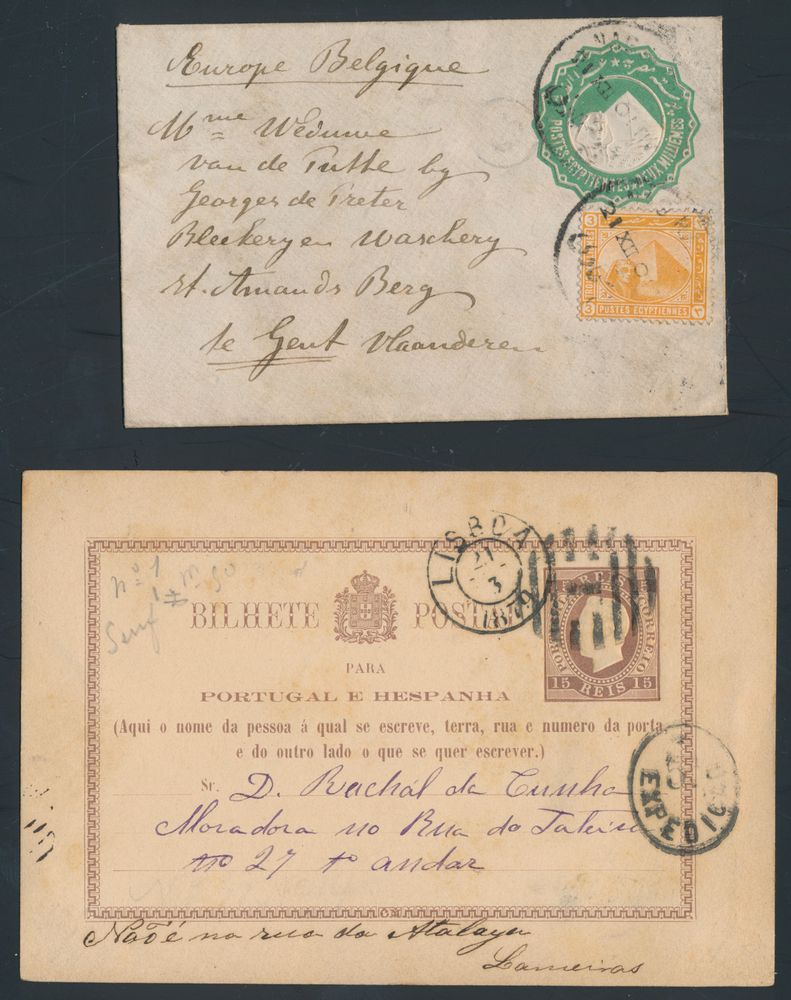 Europe Belgique
Mme Weduwe
van de Putte by
Georges de Preter
Bleekery en Wasschery
St. Amands Berg
te Gent Vlaanderen
POSTES EGYPTIENNES DEUX MILLIEMES
3 3
POSTES EGYPTIENNES
LISBOA
21
3
1879
nº 1
BILHETE POSTAL
CORREIO
15 REIS 15
PARA
PORTUGAL E HESPANHA
(Aqui o nome da pessoa á qual se escreve, terra, rua e numero da porta
e do outro lado o que se quer escrever.)
Sr. D. Rachál da Cunha
Moradora no Rua da
nº 27 1º andar
EXPEDIÇÃO
C.M.
Não é na rua da Atalaya
Lameiras